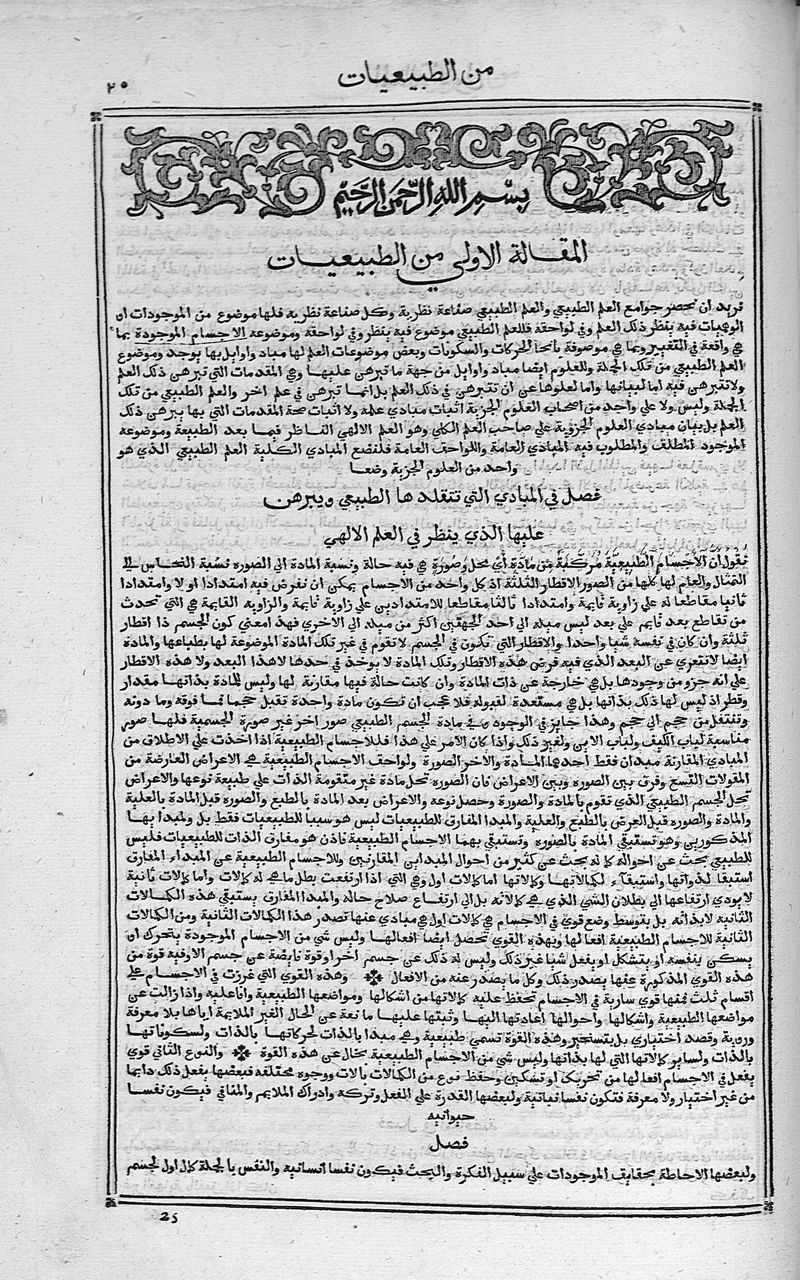 من الطبيعيات
٢٥
بسم الله الرحمن الرحيم
المقالة الاولي من الطبيعيات
نريد ان نحصر جوامع العلم الطبيعي والعلم الطبيعي صناعة نظرية وكل صناعة نظريه فلها موضوع من الموجودات او
الوهميات فيه ينظر ذلك العلم وفي لواحقه فللعلم الطبيعي موضوع فيه ينظر وفي لواحقه وموضوعه الاجسام الموجودة بما
هي واقعة في التغيير وبما هي موصوفة بانحا الحركات والسكونات وبعض موضوعات العلم لها مباد واوايل بها يوجد وموضوع
العلم الطبيعي من تلك الجلة وللعلوم ايضا مباد واوايل من جهة ما تبرهن عليها وهي المقدمات التي تبرهن ذلك العلم
ولا تتبرهن فيه اما لبيانها واما لعلوها عن ان تتبرهن في ذلك العلم بل انما تبرهن في علم اخر والعلم الطبيعي من تلك
الجملة وليس ولا علي واحد من اصحاب العلوم الجزية اثبات مبادي علمه ولا اثبات صحة المقدمات التي بها يبرهن ذلك
العلم بل بيان مبادي العلوم الجزوية علي صاحب العلم الكلي وهو العلم الالهي الناظر فيما بعد الطبيعة وموضوعه
الموجود المطلف والمطلوب فيه المبادي العامة واللواحف العامة فلنضع المبادي الكلية العلم الطبيعي الذي هو
واحد من العلوم الجزية وضعا
فصل في المبادي التي تتقلدها الطبيعي ويبرهن
عليها الذي ينظر في العلم الالهي
نقول ان الاجسام الطبيعية مركبة من مادة اي محل وصورة هي فيه حالة ونسبة المادة الي الصوره نسبة النحاس الي
التمثال والعام لها كلها من الصور الاقطار الثلثة اذ كل واحد من الاجسام يمكن ان نفرض فيه امتدادا اولا وامتدادا
ثانيا مقاطعا له علي زاوية قايمة وامتدادا ثالثا مقاطعا للامتدادين علي زاوية قايمة والزاويه القايمة هي التي تحدث
من تقاطع بعد قايم علي بعد ليس ميله الي احد الجهتين اكثر من ميله الي الاخري فهذا معني كون الجسم ذا اقطار
ثلثة وان كان في نفسه شيا واحدا والاقطار التي تكون في الجسم لا تقوم في غير تلك المادة الموضوعة لها بطباعها والمادة
ايضا لا تتعري عن البعد الذي فيه فرض هذه الاقطار وتلك المادة لا يوخذ في حدها لا هذا البعد ولا هذه الاقطار
علي انه جزو من وجودها بل هي خارجة عن ذات المادة وان كانت حالة فيها مقارنة لها وليس للمادة بذاتها مقدار
وقطر اذ ليس لها ذلك بذاتها بل هي مستعدة لقبوله فلا عجب ان تكون مادة واحدة تقبل حجما فما فوقه وما دونه
وتنتقل من حجم الي حجم وهذا جايز في الوجود وفي مادة الجسم الطبيعي صور اخر غير صورة الجسمية فلها صور
مناسبة لباب الكيف ولباب الاين ولغير ذلك واذا كان الامر علي هذا فللاجسام الطبيعية اذا اخذت علي الاطلاق من
المبادي المقارنة مبدان فقط احدهما المادة والاخر الصورة ولواحف الاجسام الطبيعية هي الاعراض العارضة من
المقولات التسع وفرق بين الصوره وبين الاعراض فان الصوره تحل مادة غير متقومة الذات علي طبيعة نوعها والاعراض
تحل الجسم الطبيعي الذي تقوم بالمادة والصورة وحصل نوعه والاعراض بعد المادة بالطبع والصوره قبل المادة بالعلية
والمادة والصوره قبل العرض بالطبع والعلية والمبدا المفارق للطبيعيات ليس هو سببا للطبيعيات فقط بل ولمبدا يها
المذكورين وهو تستبقي المادة بالصوره وتستبقي بهما الاجسام الطبيعية فاذن هو مفارق الذات للطبيعيات فليس
للطبيعي بحث عن احواله كما له بحث عن كثير من احوال المبداين المقارنين وللاجسام الطبيعية عن المبداء المفارق
استبقا لذواتها واستبقاء لكمالاتها وكمالاتها اما كمالات اول وهي التي اذا ارتفعت بطل ما هي له كمالات واما كمالات ثانية
لا يودي ارتفاعها الي بطلان الشي الذي هي كمالاته بل الي ارتفاع صلاح حاله والمبدا المفارق يستبقي هذه الكمالات
الثانيه لا بذاته بل بتوسط وضع قوي في الاجسام هي كمالات اول هي مبادي عنها تصدر هذا الكمالات الثانية ومن الكمالات
الثانية للاجسام الطبيعية افعالها وبهذه القوي تحصل ايضا افعالها وليس شي من الاجسام الموجودة يتحرك او
يسكن بنفسه او يتشكل او يفعل شيا غير ذلك وليس له ذلك عن جسم اخر او قوة نايضة عن جسم الا وفيه قوة من
هذه القوي المذكورة عنها يصدر ذلك وكل ما يصدر عنه من الافعال وهذه القوي التي غرزت في الاجسام علي
اقسام ثلث فمنها قوي سارية في الاجسام تحفظ عليه كمالاتها من اشكالها ومواضعها الطبيعية وافاعليه واذا زالت عن
مواضعها الطبيعية واشكالها واحوالها اعادتها اليها وثبتها عليها مانعة عن الحال الغير الملايمة اياها بلا معرفة
وروية وقصد اختياري بل بتسخير وهذه القوة تسمي طبيعية وهي مبدا بالذات لحركاتها بالذات ولسكوناتها
بالذات ولساير كمالاتها التي لها بذاتها وليس شي من الاجسام الطبيعية بخال عن هذه القوة والنوع الثاني قوي
يفعل في الاجسام افعالها من تحريك او تسكين وحفظ نوع من الكمالات بالات ووجوه مختلفه فبعضها يفعل ذلك دايما
من غير اختيار ولا معرفة فتكون نفسا نباتية ولبعضها القدرة علي الفعل وتركه وادراك الملايم والمنافي فيكون نفسا
حيوانيه
فصل
ولبعضها الاحاطة بحقايف الموجودات علي سبيل الفكرة والبحث فيكون نفسا انسانيه والنفس بالجلة كمال اول لجسم
25